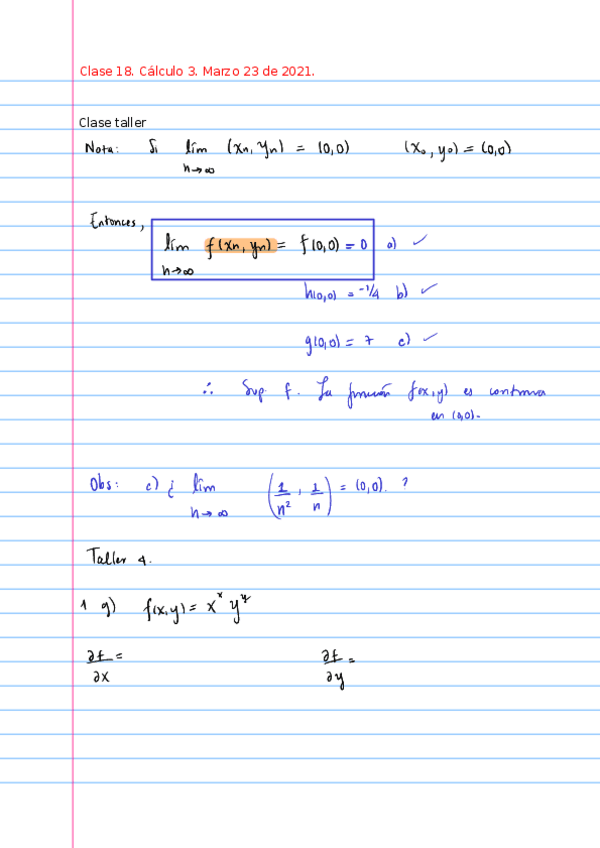 Clase 18. Cálculo 3. Marzo 23 de 2021.
Clase taller
Nota: Si lím (xn, yn) = (0,0) (x0, y0) = (0,0)
n→∞
Entonces,
lím f(xn, yn) = f(0,0) = 0 a) ✓
n→∞
h(0,0) = -1/4 b) ✓
g(0,0) = 7 c) ✓
∴ Sup. f. La función f(x,y) es continua
en (0,0).
Obs: c) ¿ lím (1/n², 1/n) = (0,0). ?
n→∞
Taller 4.
1 g) f(x,y) = x^x y^y
∂f/∂x = ∂f/∂y =